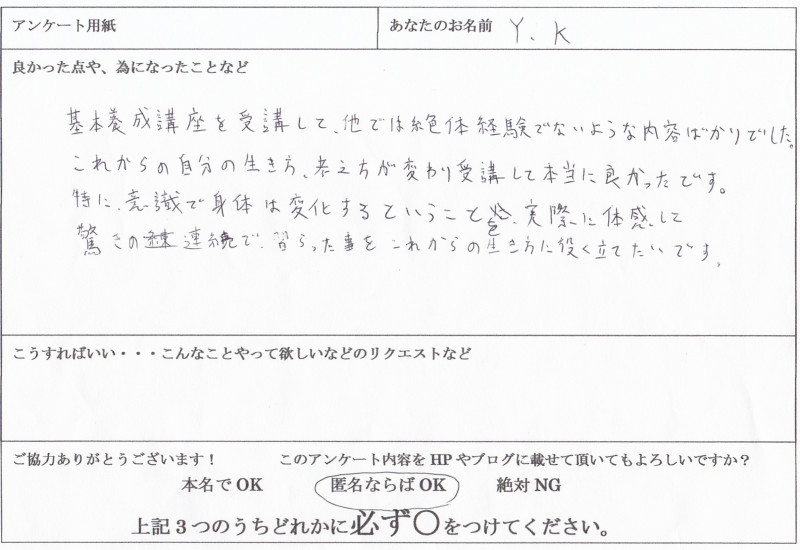 アンケート用紙
あなたのお名前 Y.K
良かった点や、為になったことなど
基本養成講座を受講して、他では絶体経験でないような内容ばかりでした。
これからの自分の生き方、考え方が変わり受講して本当に良かったです。
特に、意識で身体は変化するということを、実際に体感して
驚きの連続で、習らった事をこれからの生き方に役く立てたいです。
こうすればいい・・・こんなことやって欲しいなどのリクエストなど
ご協力ありがとうございます！ このアンケート内容をHPやブログに載せて頂いてもよろしいですか？
本名でOK 匿名ならばOK 絶対NG
上記3つのうちどれかに必ず〇をつけてください。